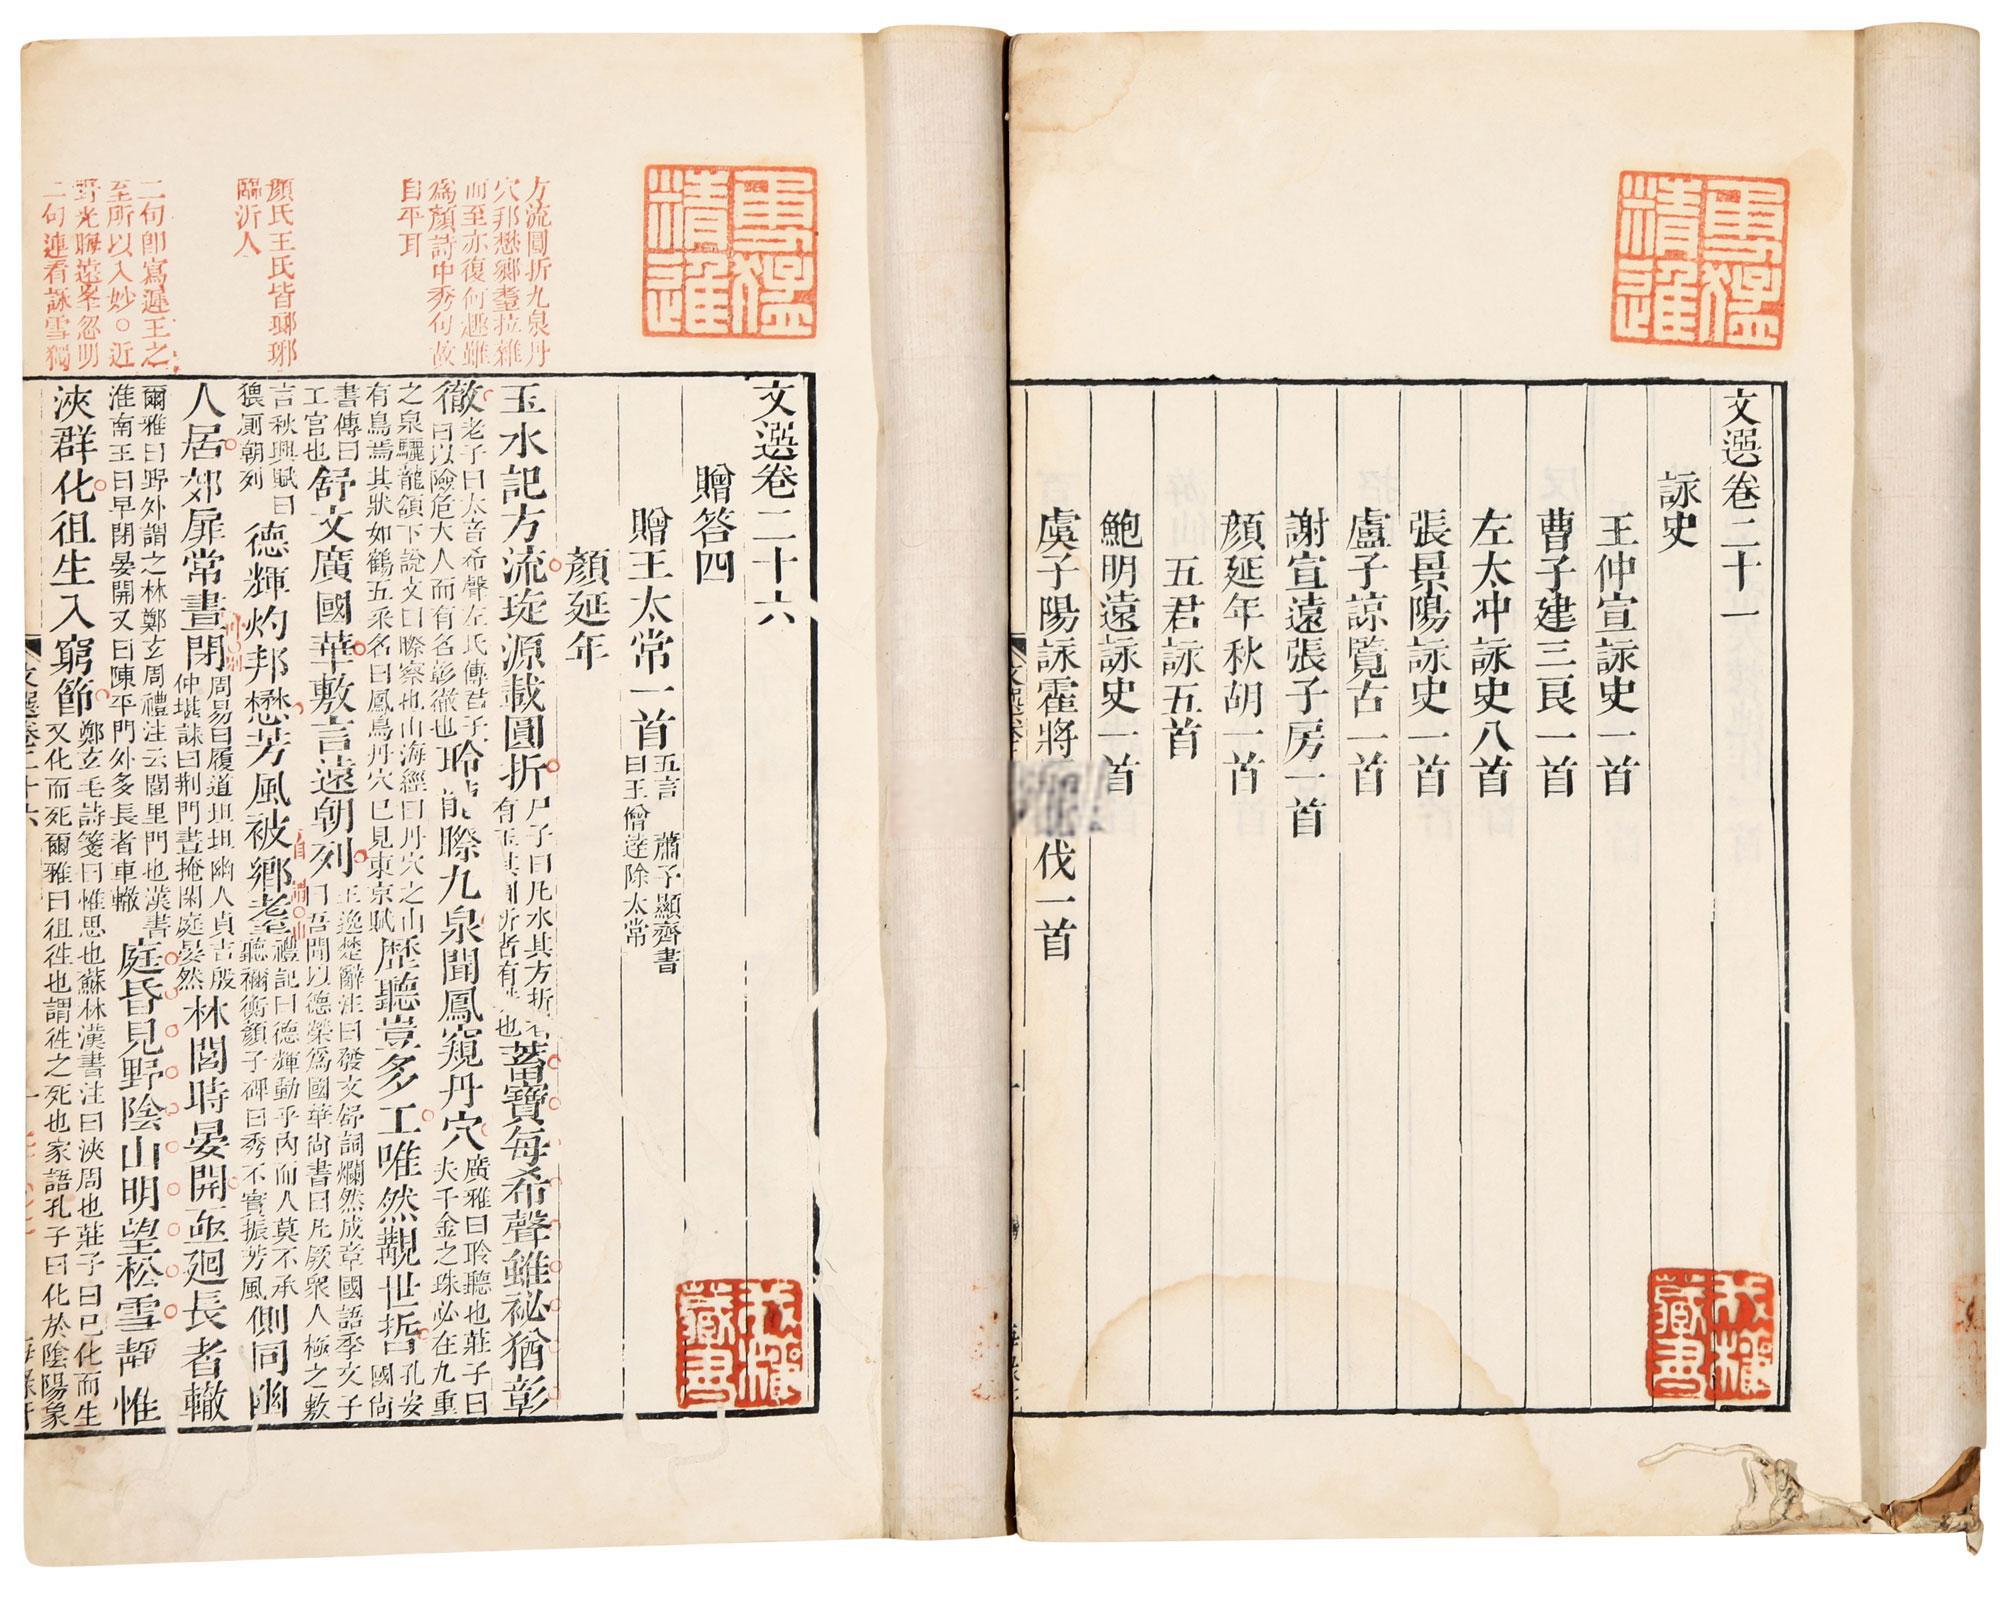 文選卷二十一
詠史
王仲宣詠史一首
曹子建三良一首
左太冲詠史八首
張景陽詠史一首
盧子諒覽古一首
謝宣遠張子房一首
顔延年秋胡一首
五君詠五首
鮑明遠詠史一首
虞子陽詠霍將伐一首
藏書
方流圓折九泉丹
穴邦懋鄉耋拉雜
而至亦復何趣雖
爲顔詩中秀句故
自平耳
顔氏王氏皆瑯琊
臨沂人
二句卽寫遲王之
至所以入妙○近
野光晦遠峯忽明
二句連看詠雪獨
文選卷二十六
贈答四
贈王太常一首五言 蕭子顯齊書曰王僧達除太常
顔延年
玉水記方流琁源載圓折尸子曰凡水其方折者有玉其圓折者有也蓄寶每希聲雖祕猶彰
徹老子曰太音希聲左氏傳君子曰以險危大人而有名彰徹也聆龍䁗九泉聞鳳窺丹穴廣雅曰聆聽也莊子曰夫千金之珠必在九重
之泉驪龍頷下說文曰䁗察也山海經曰丹穴之山有鳥焉其狀如鶴五采名曰鳳鳥丹穴已見東京賦歷聽豈多工唯然覯世哲孔安國尚
書傳曰工官也舒文廣國華敷言遠朝列王逸楚辭注曰發文舒詞爛然成章國語季文子曰吾聞以德榮爲國華尚書曰凡厥衆人極之敷
言秋興賦曰猥厠朝列德輝灼邦懋芳風被鄉耋禮記曰德輝動乎内而人莫不承聽禰衡顔子碑曰秀不實振芳風側同幽
人居郊扉常晝閉周易曰履道坦坦幽人貞吉殷仲堪誄曰荆門晝掩閑庭晏然林閭時晏開亟廻長者轍
爾雅曰野外謂之林鄭玄周禮注云閭里門也漢書淮南王曰早閉晏開又曰陳平門外多長者車轍庭昏見野陰山明望松雪靜惟
浹群化徂生入窮節鄭玄毛詩箋曰惟思也蘇林漢書注曰浹周也莊子曰已化而生又化而死爾雅曰徂徃也謂徃之死也家語孔子曰化於陰陽象
藏書